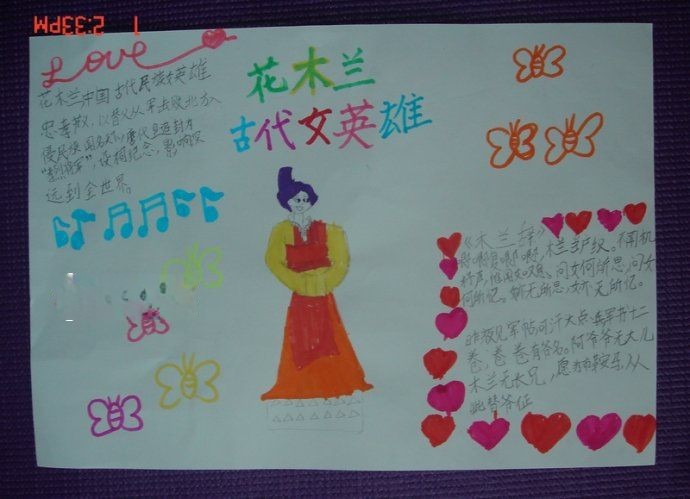 1 2:33PM
Love
花木兰
古代女英雄
花木兰中国古代民族女英雄
忠孝 以替父从军击败北方
侵民族闻名天下，唐代皇追封为
"孝烈将军"，设祠纪念，影响及
远到全世界。
《木兰辞》
唧唧复唧唧，木兰当户织。不闻机
杼声，惟闻女叹息。问女何所思，问女
何所忆。女亦无所思，女亦无所忆。
昨夜见军帖，可汗大点兵，军书十二
卷，卷卷有爷名。阿爷无大儿
木兰无长兄，愿为市鞍马，从
此替爷征